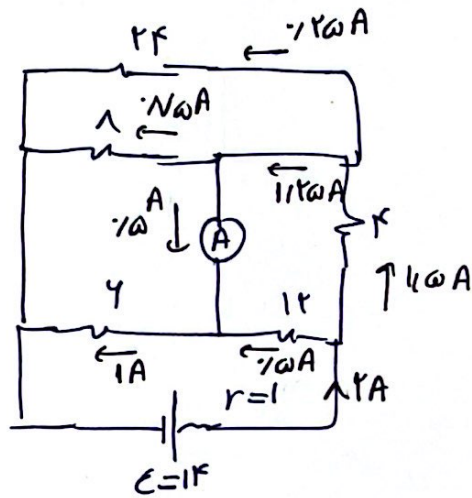 ۲۴ ۰/۲۵A
۸ ۰/۷۵A
۱/۲۵A
۰/۵A A ۴
۱/۵A
۶ ۱۲
۱A ۰/۵A
r=۱ ۲A
ε=۱۴